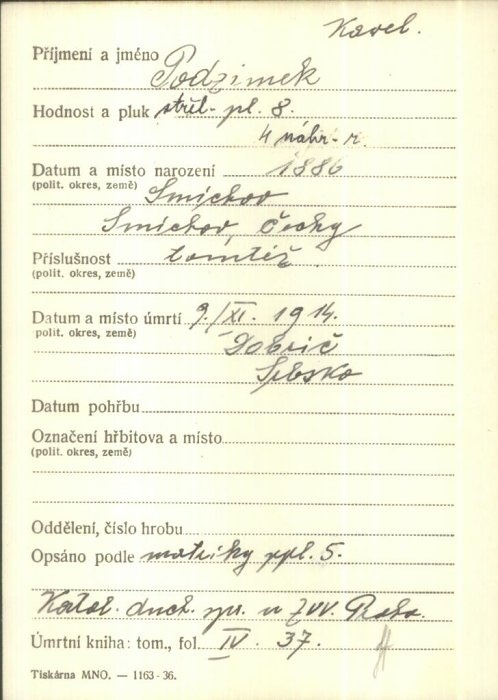 Karel.
Příjmení a jméno Podzimek
Hodnost a pluk střel. pl. 8.
4 náhr. r.
Datum a místo narození 1886
(polit. okres, země) Smíchov
Smíchov, Čechy
Příslušnost tamtéž.
(polit. okres, země)
Datum a místo úmrtí 9./XI. 1914.
polit. okres, země)
Dobrič
Srbsko
Datum pohřbu
Označení hřbitova a místo
(polit. okres, země)
Oddělení, číslo hrobu
Opsáno podle matriky ppl. 5.
Katol. duch. spr. u ZVV. Praha.
Úmrtní kniha: tom., fol. IV. 37.
Tiskárna MNO. — 1163-36.